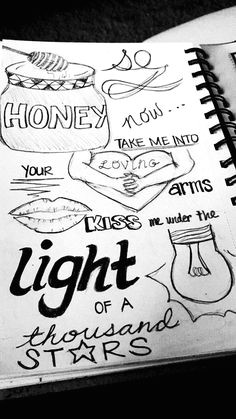 HONEY
so
now...
TAKE ME INTO
YOUR LOVING
arms
KISS me under the
light
OF A
thousand
STARS